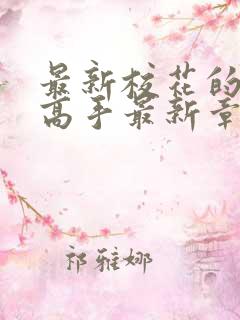 最新校花的
高手最新章
祁雅娜